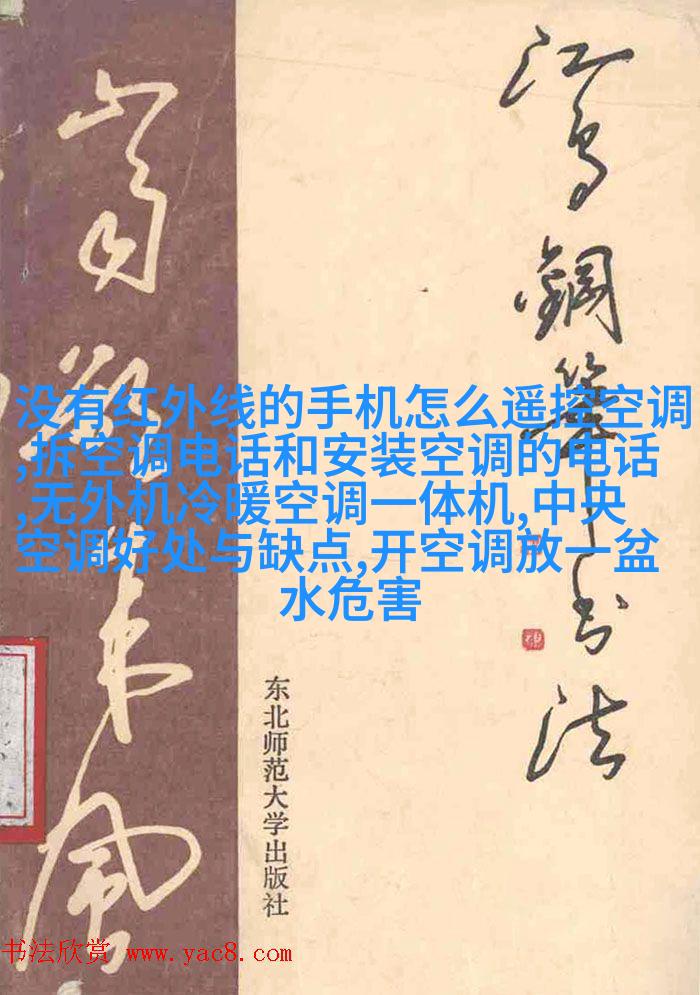 没有红外线的手机怎么遥控空调
,拆空调电话和安装空调的电话
,无外机冷暖空调一体机,中央
空调好处与缺点,开空调放一盆
水危害
江鸟钢笔书法
东北师范大学出版社
书法欣赏 www.yac8.com